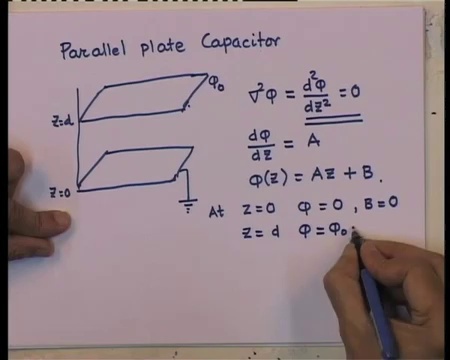 Parallel plate Capacitor
φ₀
z=d
∇²φ = d²φ/dz² = 0
dφ/dz = A
φ(z) = Az + B.
z=0
At z=0 φ=0, B=0
z=d φ=φ₀